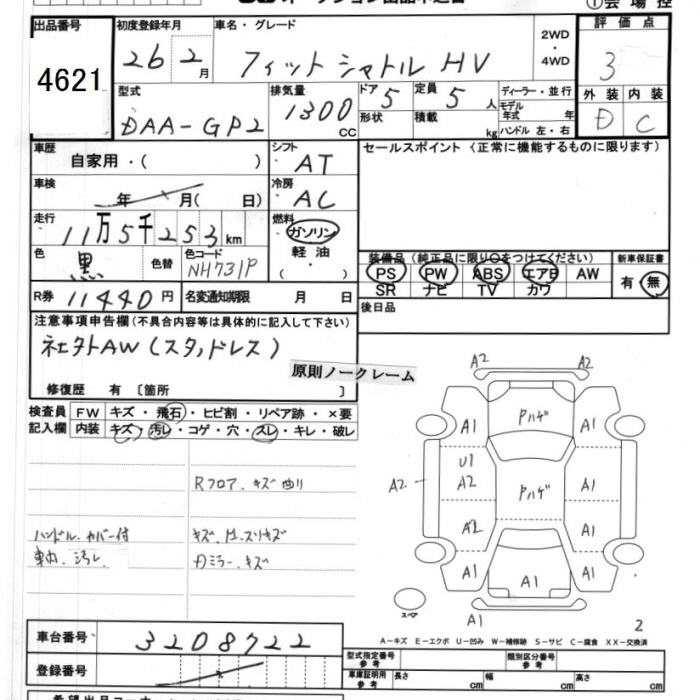 出品番号 4621
初度登録年月 26 2月
車名・グレード フィットシャトル HV
2WD ・ 4WD
評価点 3
外装 D 内装 C
型式 DAA-GP2
排気量 1300 CC
ドア 5 定員 5 人
形状 積載 kg
ディーラー・並行
モデル年式 年
ハンドル 左・右
車歴 自家用・( )
シフト AT
セールスポイント(正常に機能するものに限ります)
車検 年 月( 日)
冷房 AC
走行 11万5千253km
燃料 ガソリン 軽油 ( ・ )
色 黒 色替 色コード NH731P
装備品(純正品に限り○をつけてください) 新車保証書
PS PW ABS エアB AW 有・無
SR ナビ TV カワ
R券 11440円 名変通知期限 月 日
後日品
注意事項申告欄(不具合内容等は具体的に記入して下さい)
社外AW(スタッドレス)
原則ノークレーム
修復歴 有〔箇所 〕
検査員 FW キズ・飛石・ヒビ割・リペア跡・×要
記入欄 内装 キズ・汚レ・コゲ・穴・スレ・キレ・破レ
Rフロア.キズ曲り
ハンドル.カバー付 キズ.
車内.汚レ ミラー.キズ
A2 A2
A1 Pハゲ A1
U1
A2 A2 Pハゲ A1
A2 A1
A1 A1 A1
スペア A1 2
A-キズ E-エクボ U-凹み W-補修跡 S-サビ C-腐食 XX-交換済
車台番号 3208722
型式指定番号 参考 類別区分番号 参考
登録番号
車庫証明用 参考 長さ cm 幅 cm 高さ cm